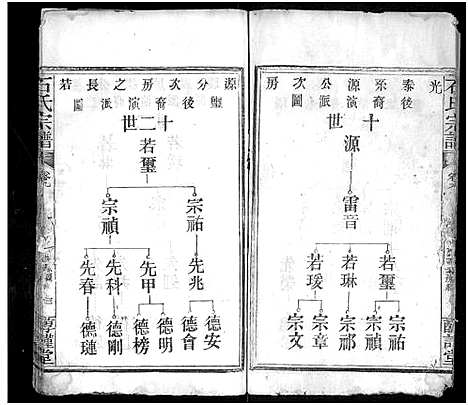 石氏宗譜
光
泰後
系裔
公派
次演
房圖
十世
源
雷音
若璽
若琳
若瑗
宗祐
宗禎
宗祁
宗章
宗文
源璽
分後
次裔
房演
之派
長圖
若
十二世
若璽
宗祐
宗禎
先兆
先甲
先科
先春
德安
德會
德明
德榜
德剛
德璉
石氏宗譜